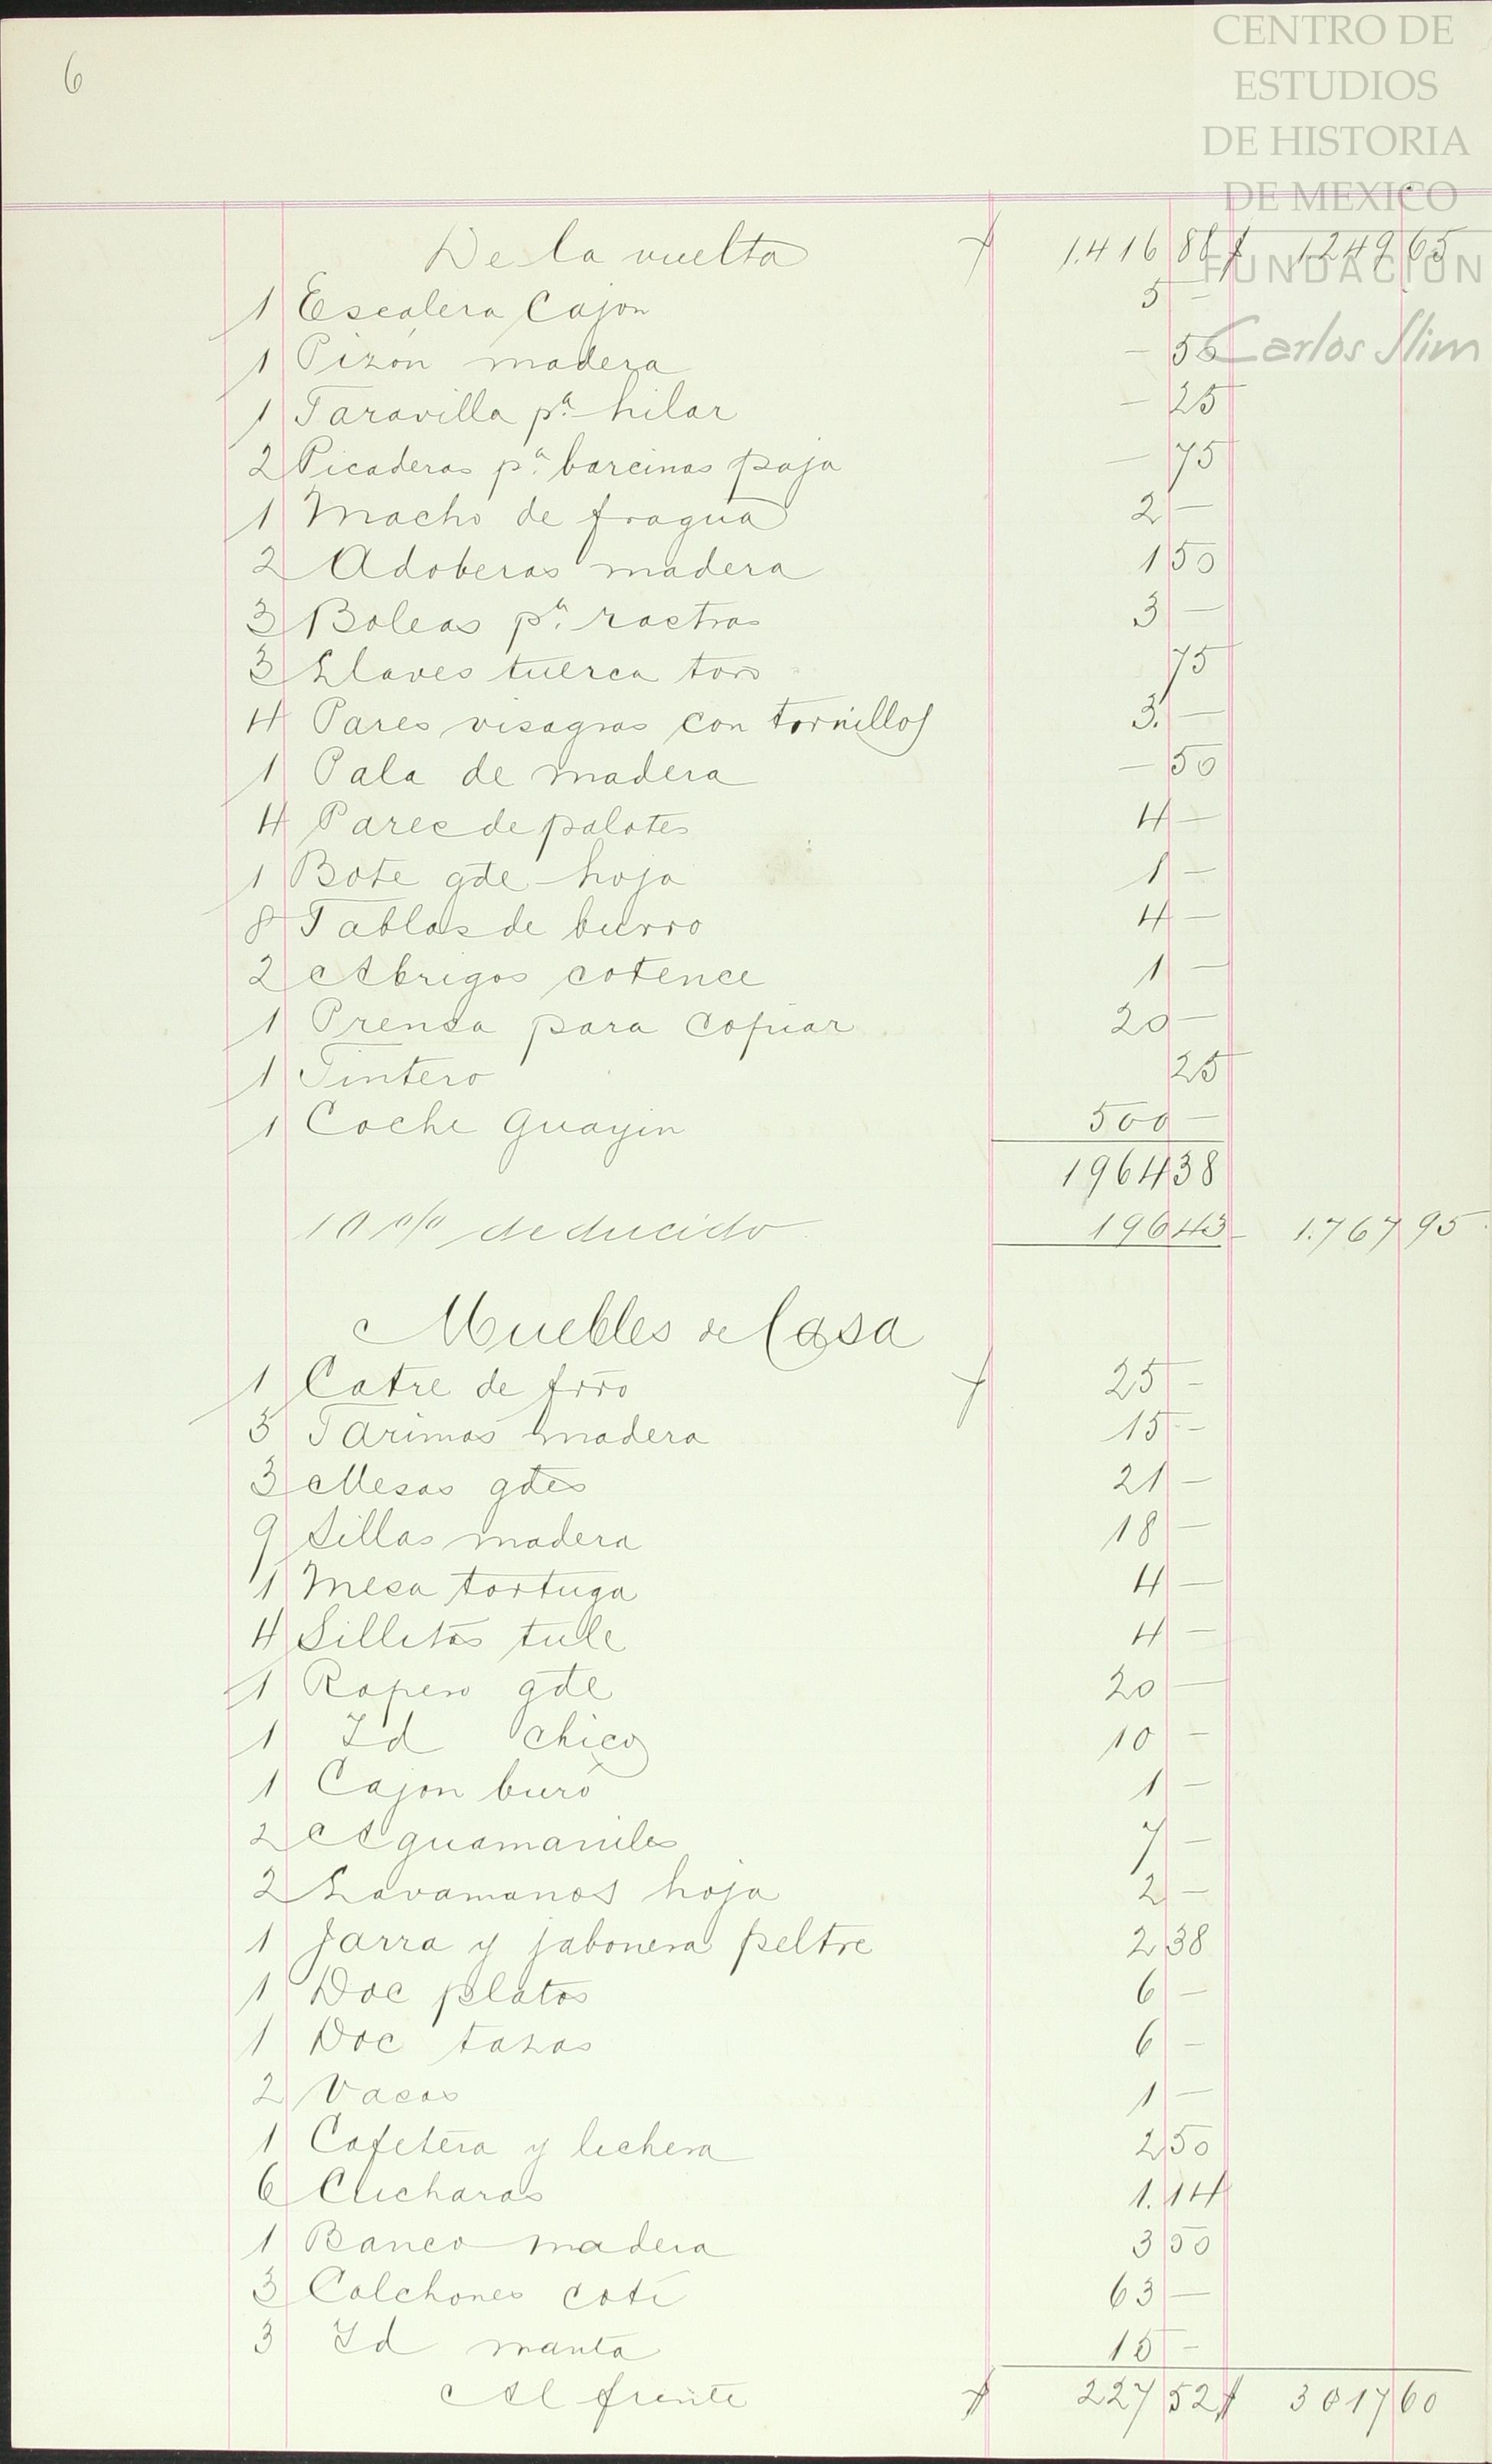 6
CENTRO DE
ESTUDIOS
DE HISTORIA
DE MEXICO
FUNDACIÓN
Carlos Slim
De la vuelta 1.416 88 $ 1249 65
1 Escalera Cajon 5 -
1 Pizón madera - 50
1 Taravilla pa. hilar - 25
2 Picaderas pa. barcinas paja - 75
1 Macho de fragua 2 -
2 Adoberas madera 1 50
3 Boleas pa. rastras 3 -
3 Llaves tuerca 75
4 Pares visagras con tornillos 3. -
1 Pala de madera - 50
4 Pares de palotes 4 -
1 Bote gde hoja 1 -
8 Tablas de burro 4 -
2 Abrigos cotence 1 -
1 Prensa para copiar 20 -
1 Tintero 25
1 Coche Guayin 500 -
1964 38
10 % deducido 196 43 1.767 95
Muebles de Casa
1 Catre de frro $ 25 -
3 Tarimas madera 15 -
3 Mesas gdes 21 -
9 Sillas madera 18 -
1 Mesa tortuga 4 -
4 Sillitas tule 4 -
1 Ropero gde 20 -
1 Id chico 10 -
1 Cajon buró 1 -
2 Aguamaniles 7 -
2 Lavamanos hoja 2 -
1 Jarra y jabonera peltre 2 38
1 Doc platos 6 -
1 Doc tazas 6 -
2 Vasos 1 -
1 Cafetera y lechera 2 50
6 Cucharas 1. 14
1 Banco madera 3 50
3 Colchones coti 63 -
3 Id manta 15 -
Al frente $ 227 52 $ 3017 60